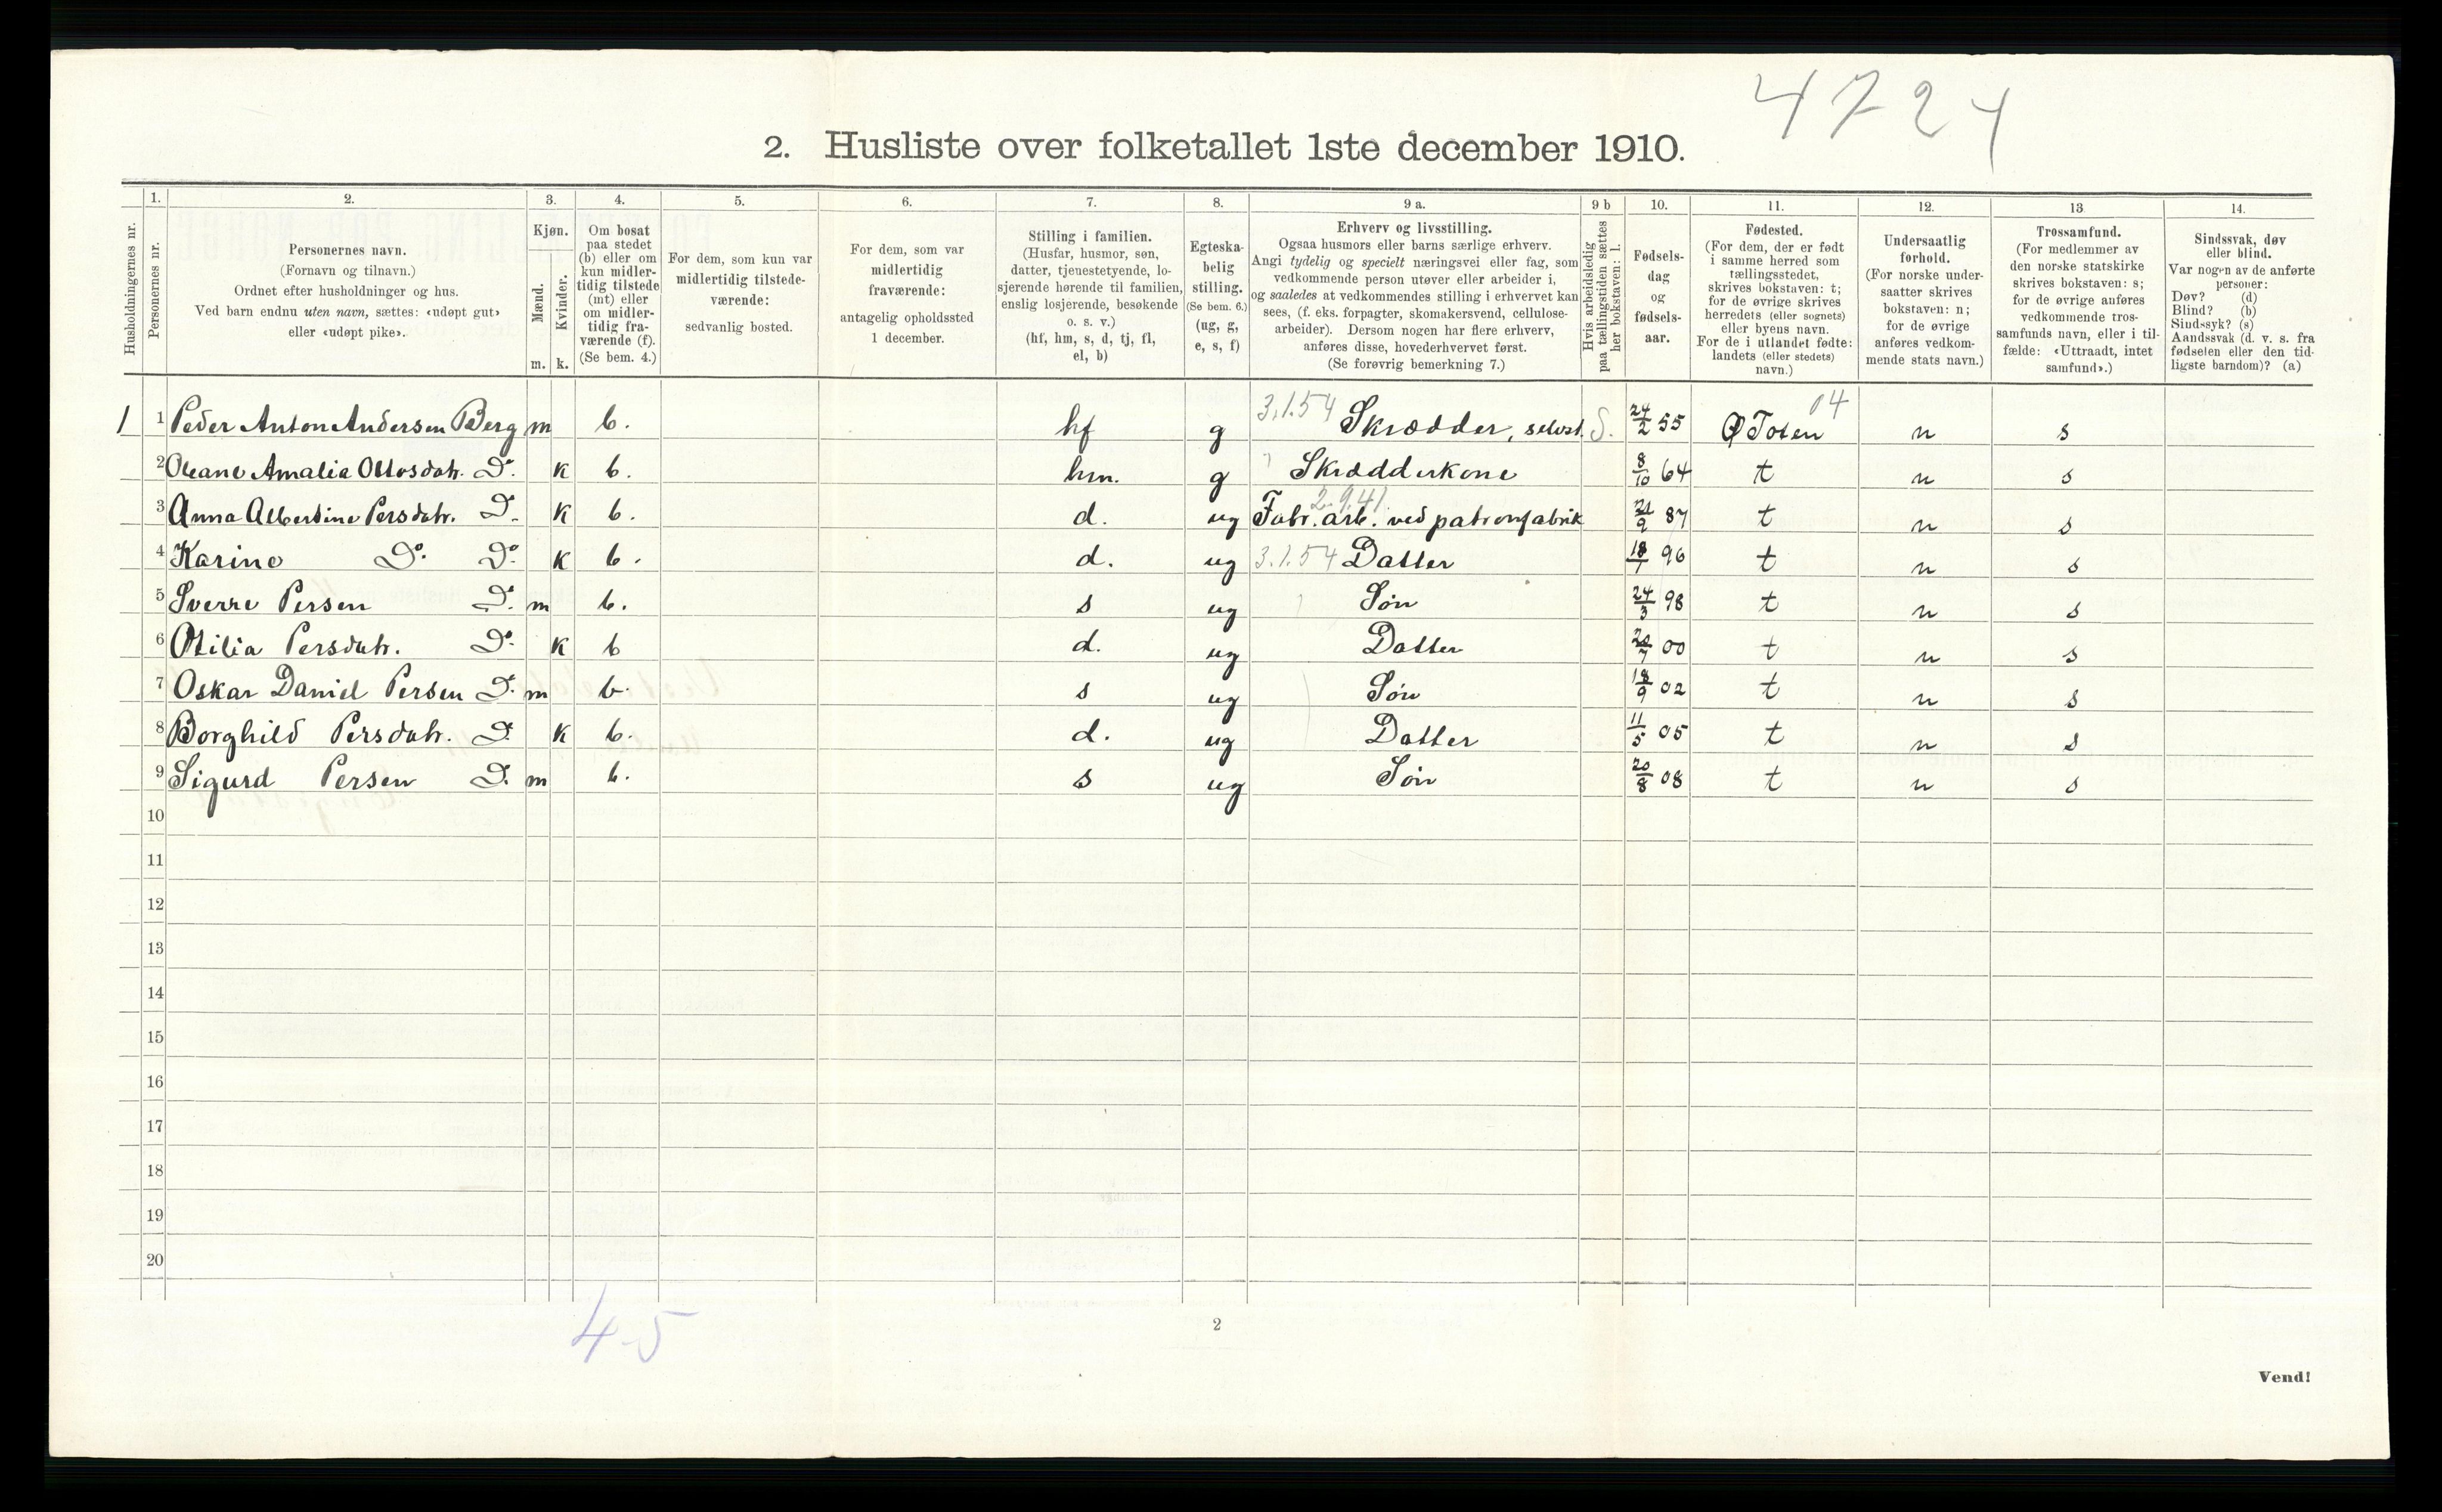 4724
2. Husliste over folketallet 1ste december 1910.
Husholdningernes nr.
1.
Personernes nr.
2.
Personernes navn.
(Fornavn og tilnavn.)
Ordnet efter husholdninger og hus.
Ved barn endnu uten navn, sættes: «udøpt gut»
eller «udøpt pike».
3.
Kjøn.
Mænd.
Kvinder.
m. k.
4.
Om bosat
paa stedet
(b) eller om
kun midler-
tidig tilstede
(mt) eller
om midler-
tidig fra-
værende (f).
(Se bem. 4.)
5.
For dem, som kun var
midlertidig tilstede-
værende:
sedvanlig bosted.
6.
For dem, som var
midlertidig
fraværende:
antagelig opholdssted
1 december.
7.
Stilling i familien.
(Husfar, husmor, søn,
datter, tjenestetyende, lo-
sjerende hørende til familien,
enslig losjerende, besøkende
o. s. v.)
(hf, hm, s, d, tj, fl,
el, b)
8.
Egteska-
belig
stilling.
(Se bem. 6.)
(ug, g,
e, s, f)
9 a.
Erhverv og livsstilling.
Ogsaa husmors eller barns særlige erhverv.
Angi tydelig og specielt næringsvei eller fag, som
vedkommende person utøver eller arbeider i,
og saaledes at vedkommendes stilling i erhvervet kan
sees, (f. eks. forpagter, skomakersvend, cellulose-
arbeider). Dersom nogen har flere erhverv,
anføres disse, hovederhvervet først.
(Se forøvrig bemerkning 7.)
9 b
Hvis arbeidsledig
paa tællingstiden sættes
her bokstaven: l.
10.
Fødsels-
dag
og
fødsels-
aar.
11.
Fødested.
(For dem, der er født
i samme herred som
tællingsstedet,
skrives bokstaven: t;
for de øvrige skrives
herredets (eller sognets)
eller byens navn.
For de i utlandet fødte:
landets (eller stedets)
navn.)
12.
Undersaatlig
forhold.
(For norske under-
saatter skrives
bokstaven: n;
for de øvrige
anføres vedkom-
mende stats navn.)
13
Trossamfund.
(For medlemmer av
den norske statskirke
skrives bokstaven: s;
for de øvrige anføres
vedkommende tros-
samfunds navn, eller i til-
fælde: «Uttraadt, intet
samfund».)
14.
Sindssvak, døv
eller blind.
Var nogen av de anførte
personer:
Døv? (d)
Blind? (b)
Sindssyk? (s)
Aandssvak (d. v. s. fra
fødselen eller den tid-
ligste barndom)? (a)
3.1.54 04
1 1 Peder Anton Andersen Berg m b. hf g Skrædder, selvst. S. 24/2 55 Ø Toten n s
2 Oleane Amalia Ottosdatr. Do. k b. hm. g Skrædderkone 8/10 64 t n s
2.9.41
3 Anna Albertine Persdatr. Do. k b. d. ug Fabr. arb. ved patronfabrik 21/9 87 t n s
4 Karine Do. Do. k b. d. ug 3.1.54 Datter 18/7 96 t n s
5 Sverre Persen Do. m b. s ug Søn 24/3 98 t n s
6 Otilia Persdatr. Do. k b d. ug Datter 20/7 00 t n s
7 Oskar Daniel Persen Do. m b. s ug Søn 18/9 02 t n s
8 Borghild Persdatr. Do. k b. d. ug Datter 11/5 05 t n s
9 Sigurd Persen Do. m b. s ug Søn 20/8 08 t n s
10
11
12
13
14
15
16
17
18
19
20
4-5
2
Vend!